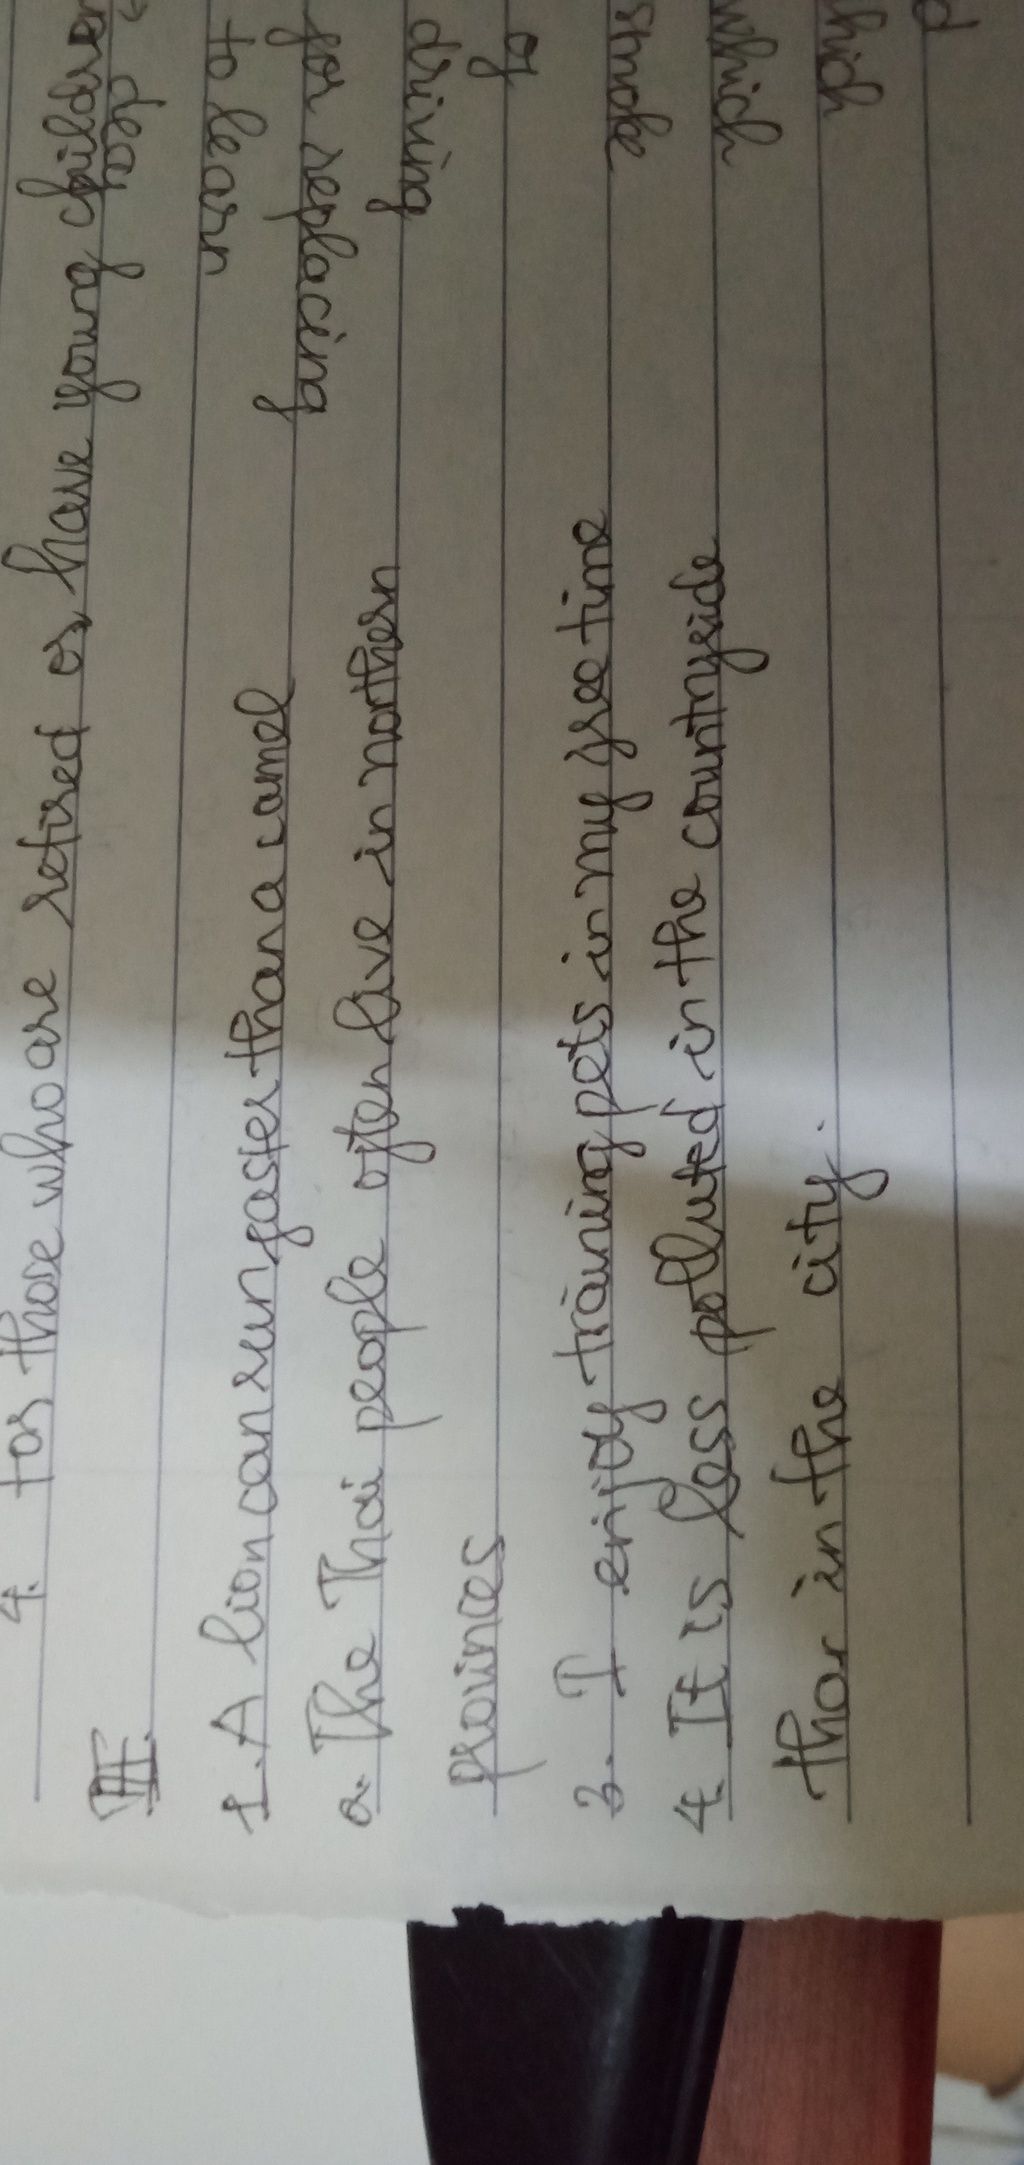 4. for those who are retired or have young children
III.
1. A lion can run faster than a camel
2. The Thai people often live in northern
provinces
3. I enjoy training pets in my free time
4. It is less polluted in the countryside
than in the city.
to learn
for replacing
driving
of
smoke
which
which
d